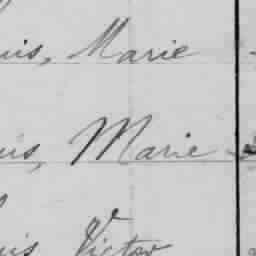 uis, Marie
uis, Marie
uis Victor